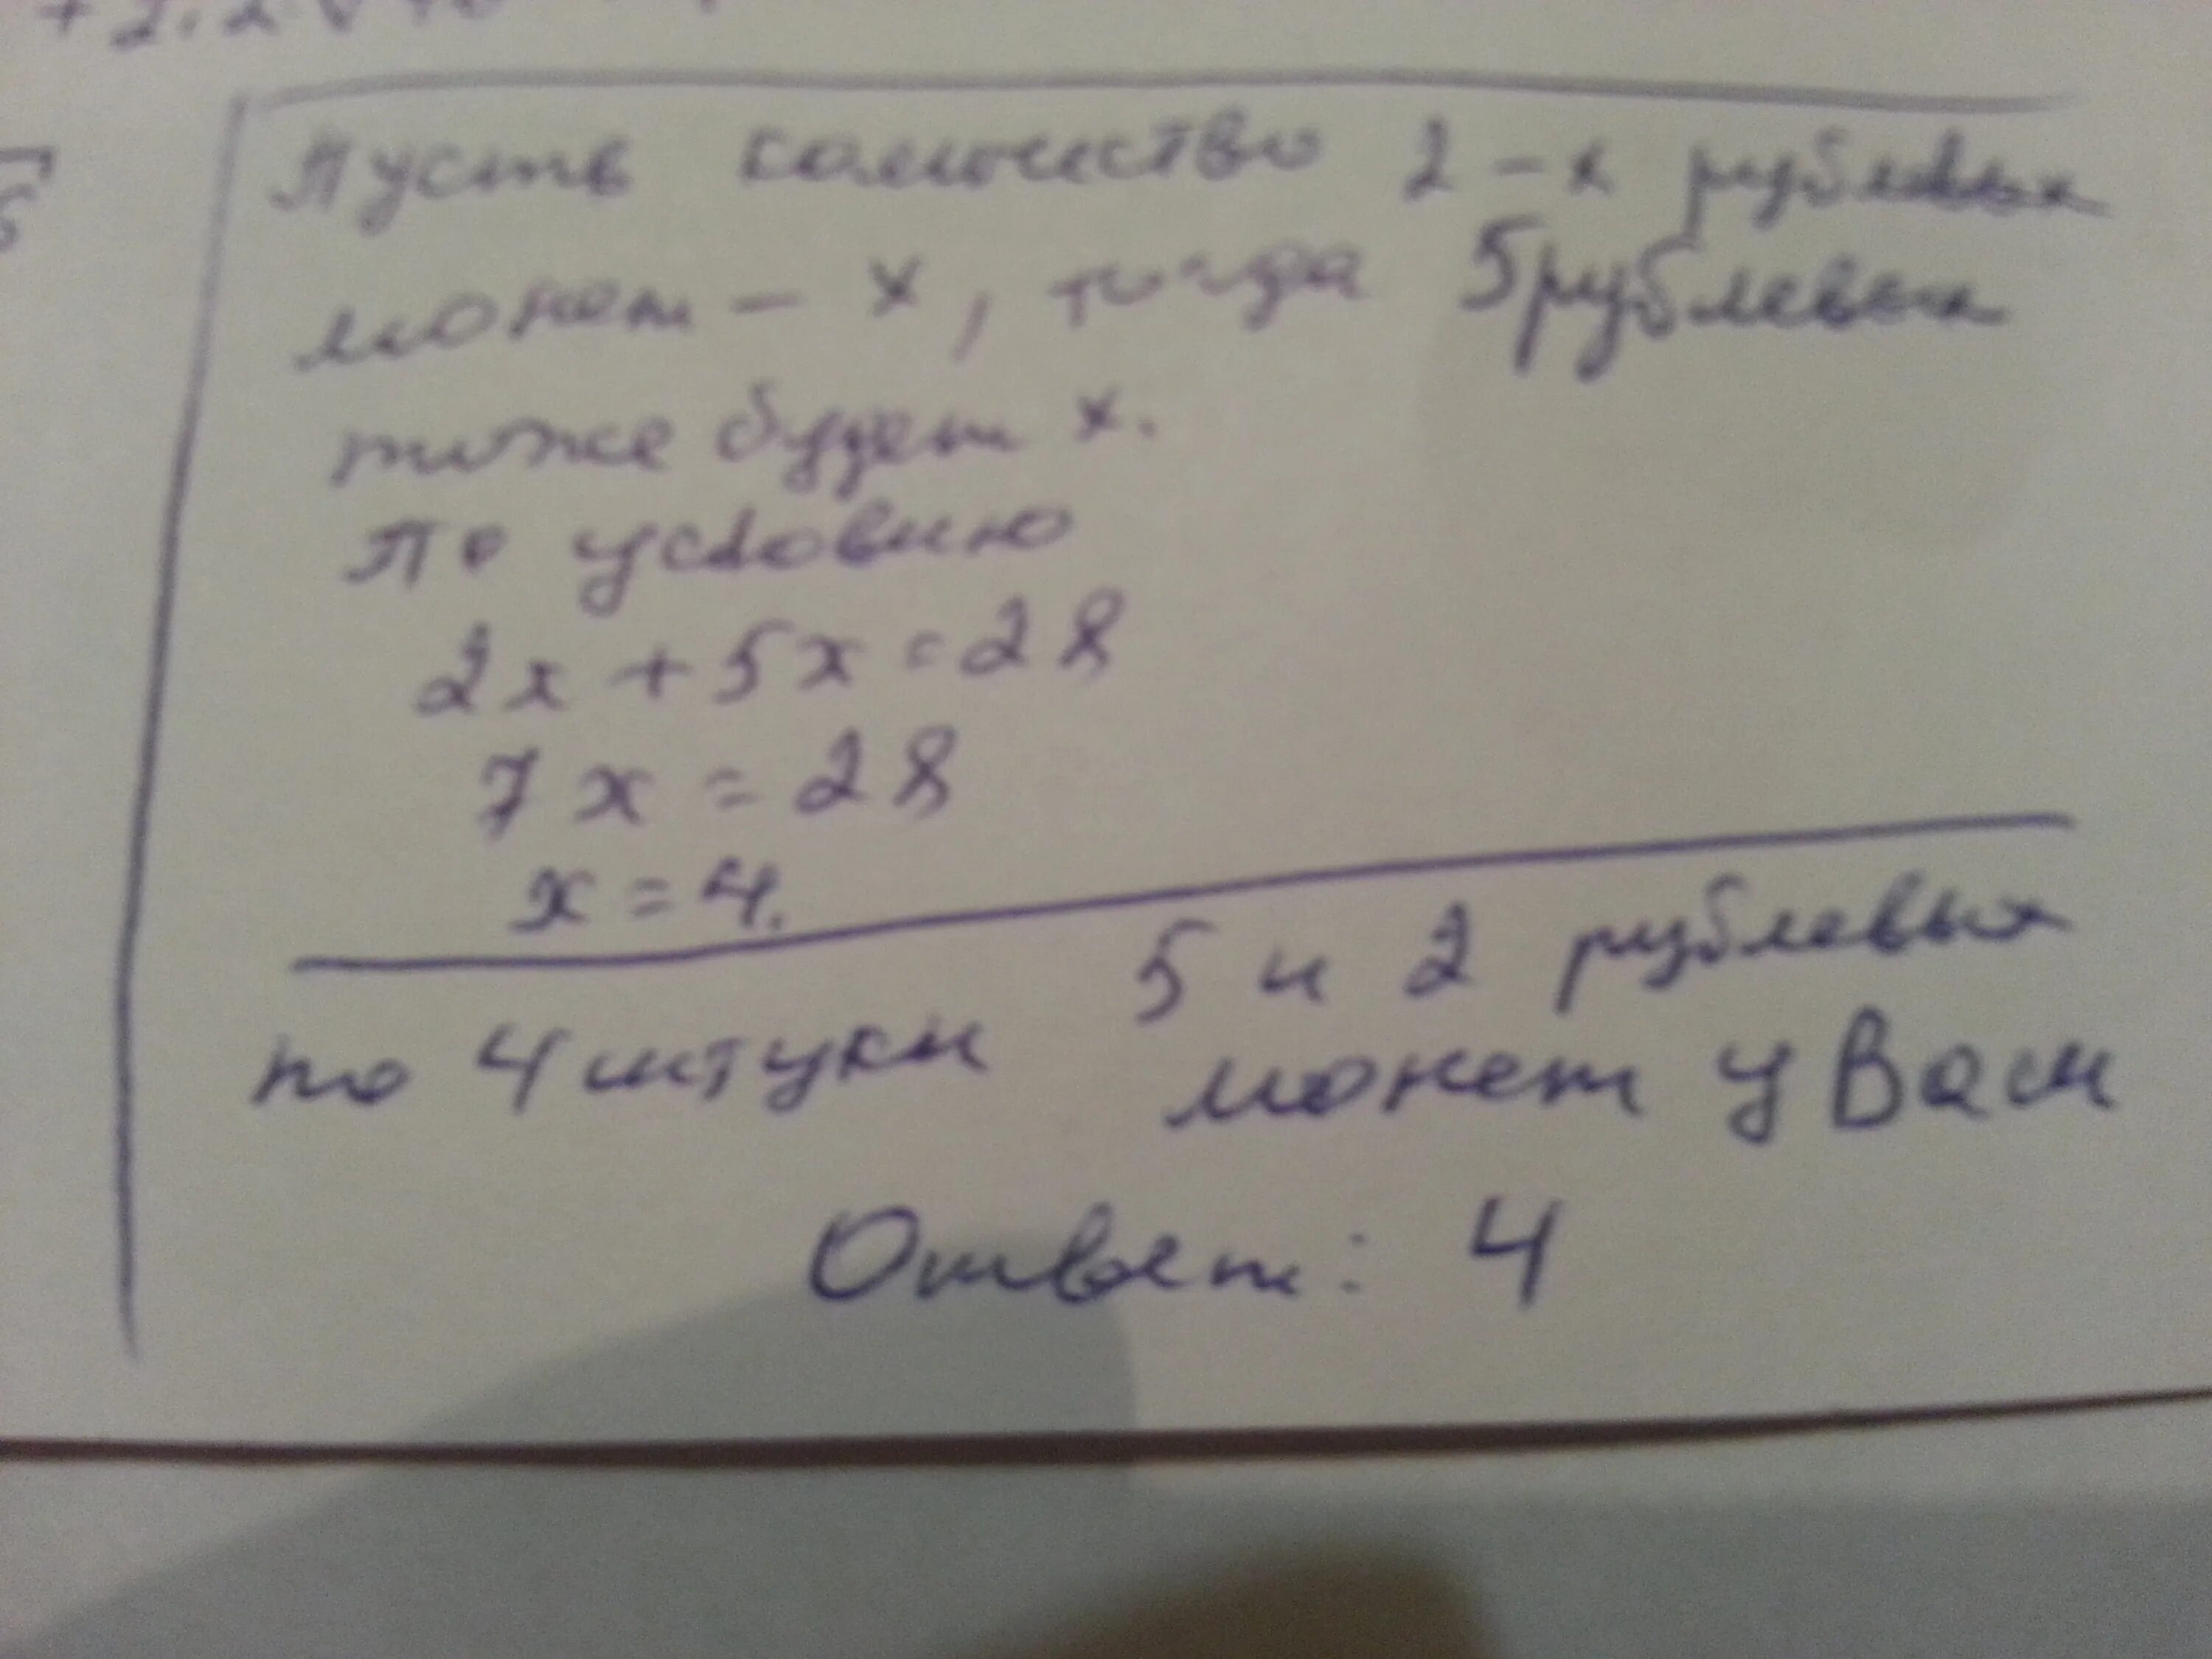 Пусть количество 2-х рублевых
монет - х, тогда 5рублевых
тоже будет х.
По условию
2х + 5х = 28
7х = 28
х = 4.
по 4 штуки 5 и 2 рублевых
монет у Вам
Ответ: 4